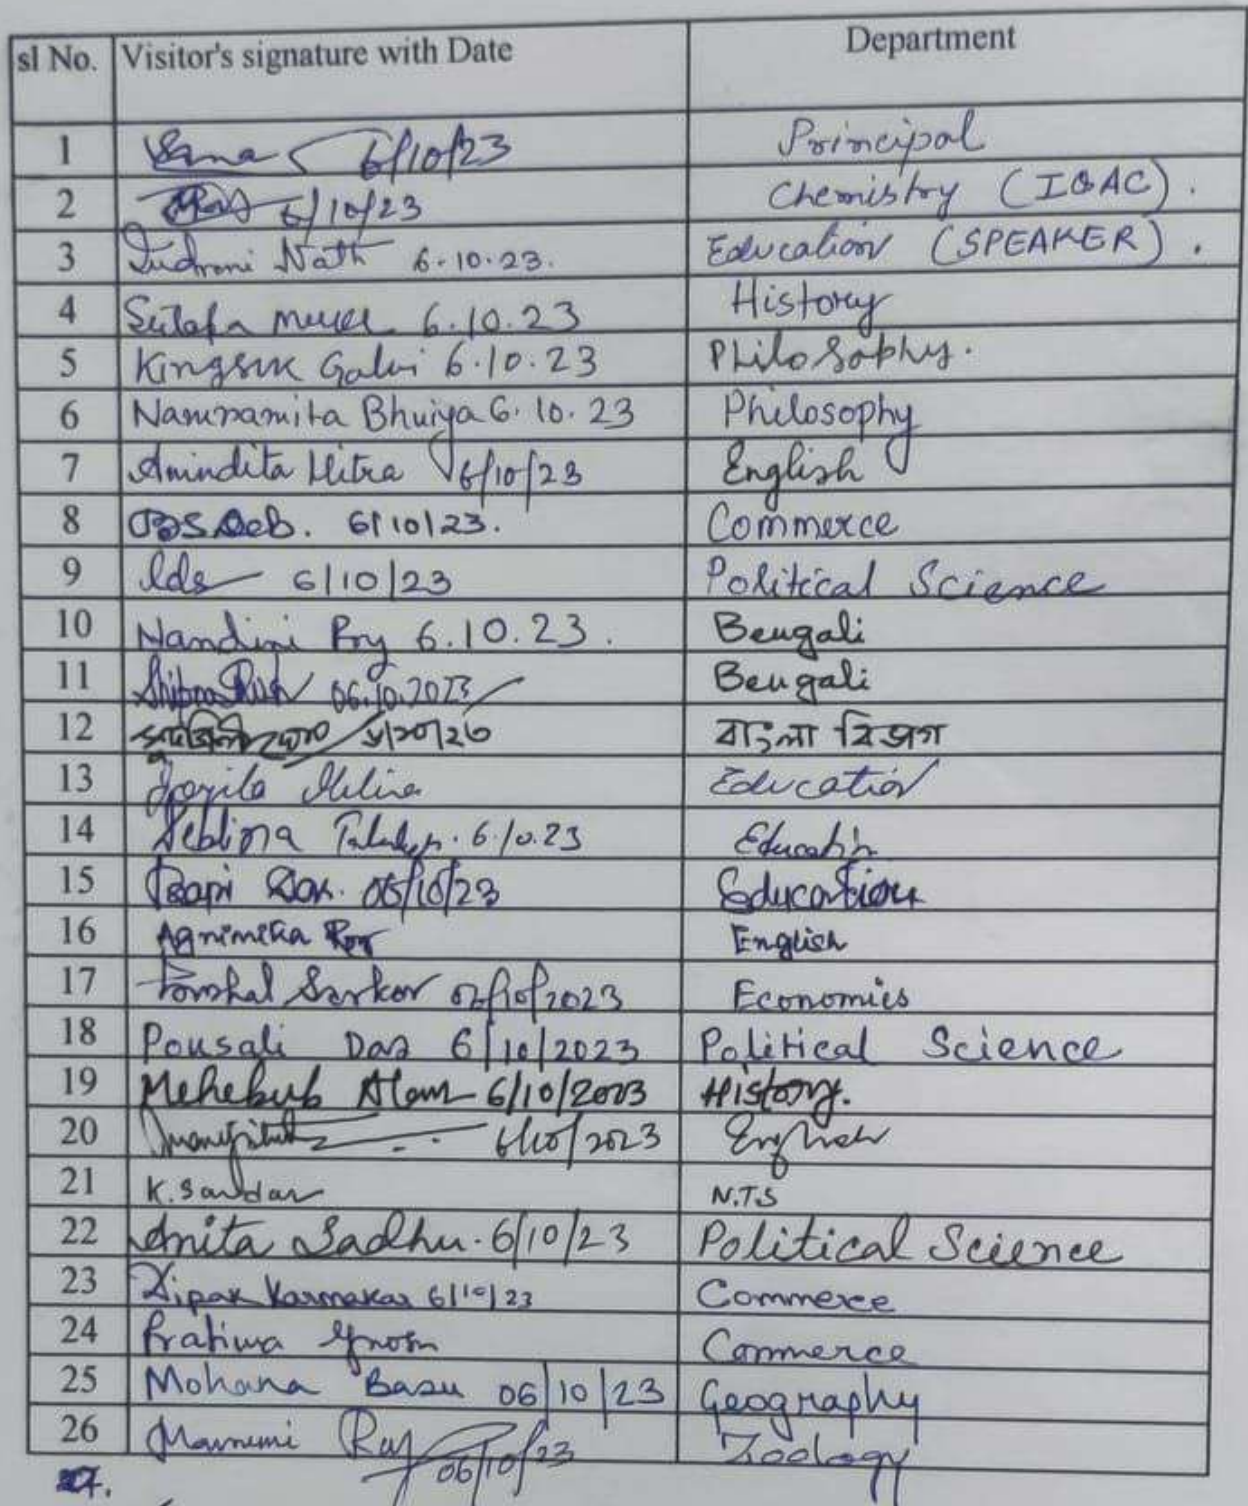 sl No. Visitor's signature with Date Department
1 6/10/23 Principal
2 6/10/23 Chemistry (IQAC).
3 Indrani Nath 6.10.23. Education (SPEAKER).
4 Sutapa 6.10.23 History
5 Kingsuk 6.10.23 Philosophy.
6 Namramita Bhuiya 6.10.23 Philosophy
7 Anindita Mitra 6/10/23 English
8 Deb. 6/10/23. Commerce
9 6/10/23 Political Science
10 Nandini Roy 6.10.23. Bengali
11 06.10.2023 Bengali
12 ৬/১০/২৩ বাংলা বিভাগ
13 Education
14 Deblina 6.10.23 Education
15 Bapi 06/10/23 Education
16 Agnimitra Roy English
17 Sarkar 06/10/2023 Economics
18 Pousali Das 6/10/2023 Political Science
19 Mehebub Alam 6/10/2023 History.
20 6/10/2023 English
21 K. Sardar N.T.S
22 Anita Sadhu. 6/10/23 Political Science
23 Dipak Karmakar 6/10/23 Commerce
24 Pratima Ghosh Commerce
25 Mohana Basu 06/10/23 Geography
26 Moumi Ray 06/10/23 Zoology
27.